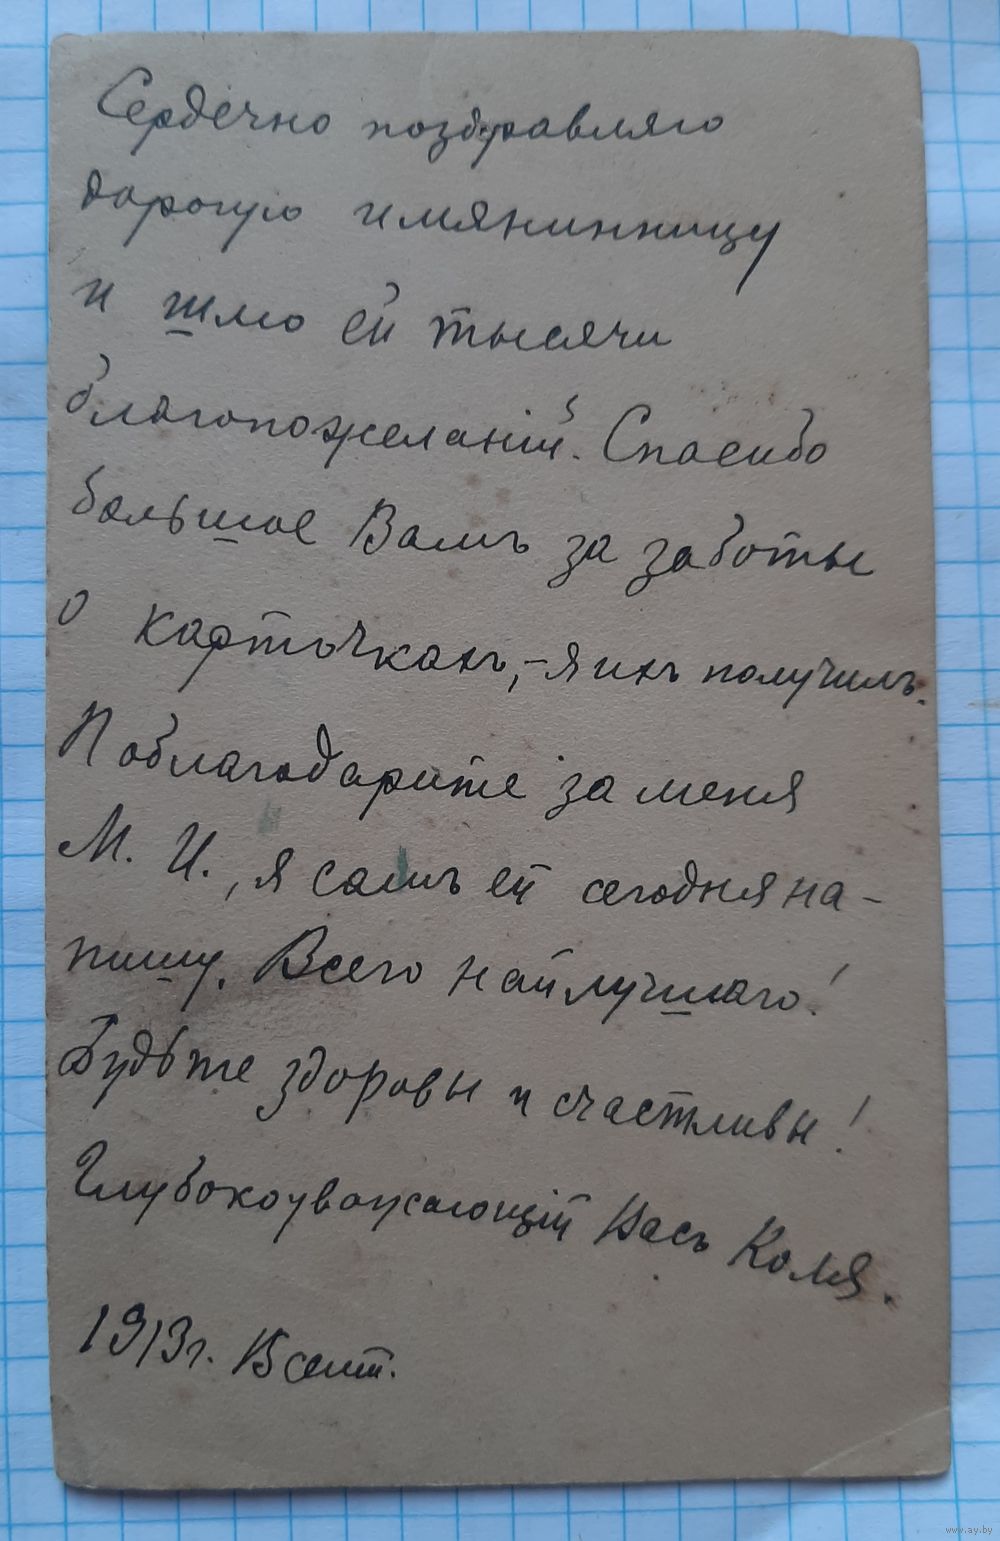 Сердечно поздравляю
дорогую имянинницу
и шлю ей тысячи
благопожеланій. Спасибо
большое Вамъ за заботы
о карточкахъ, – я ихъ получилъ.
Поблагодарите за меня
М. И., я самъ ей сегодня на-
пишу. Всего найлучшаго!
Будьте здоровы и счастливы!
Глубокоуважающій Васъ Коля.
1913 г. 15 сент.
www.ay.by